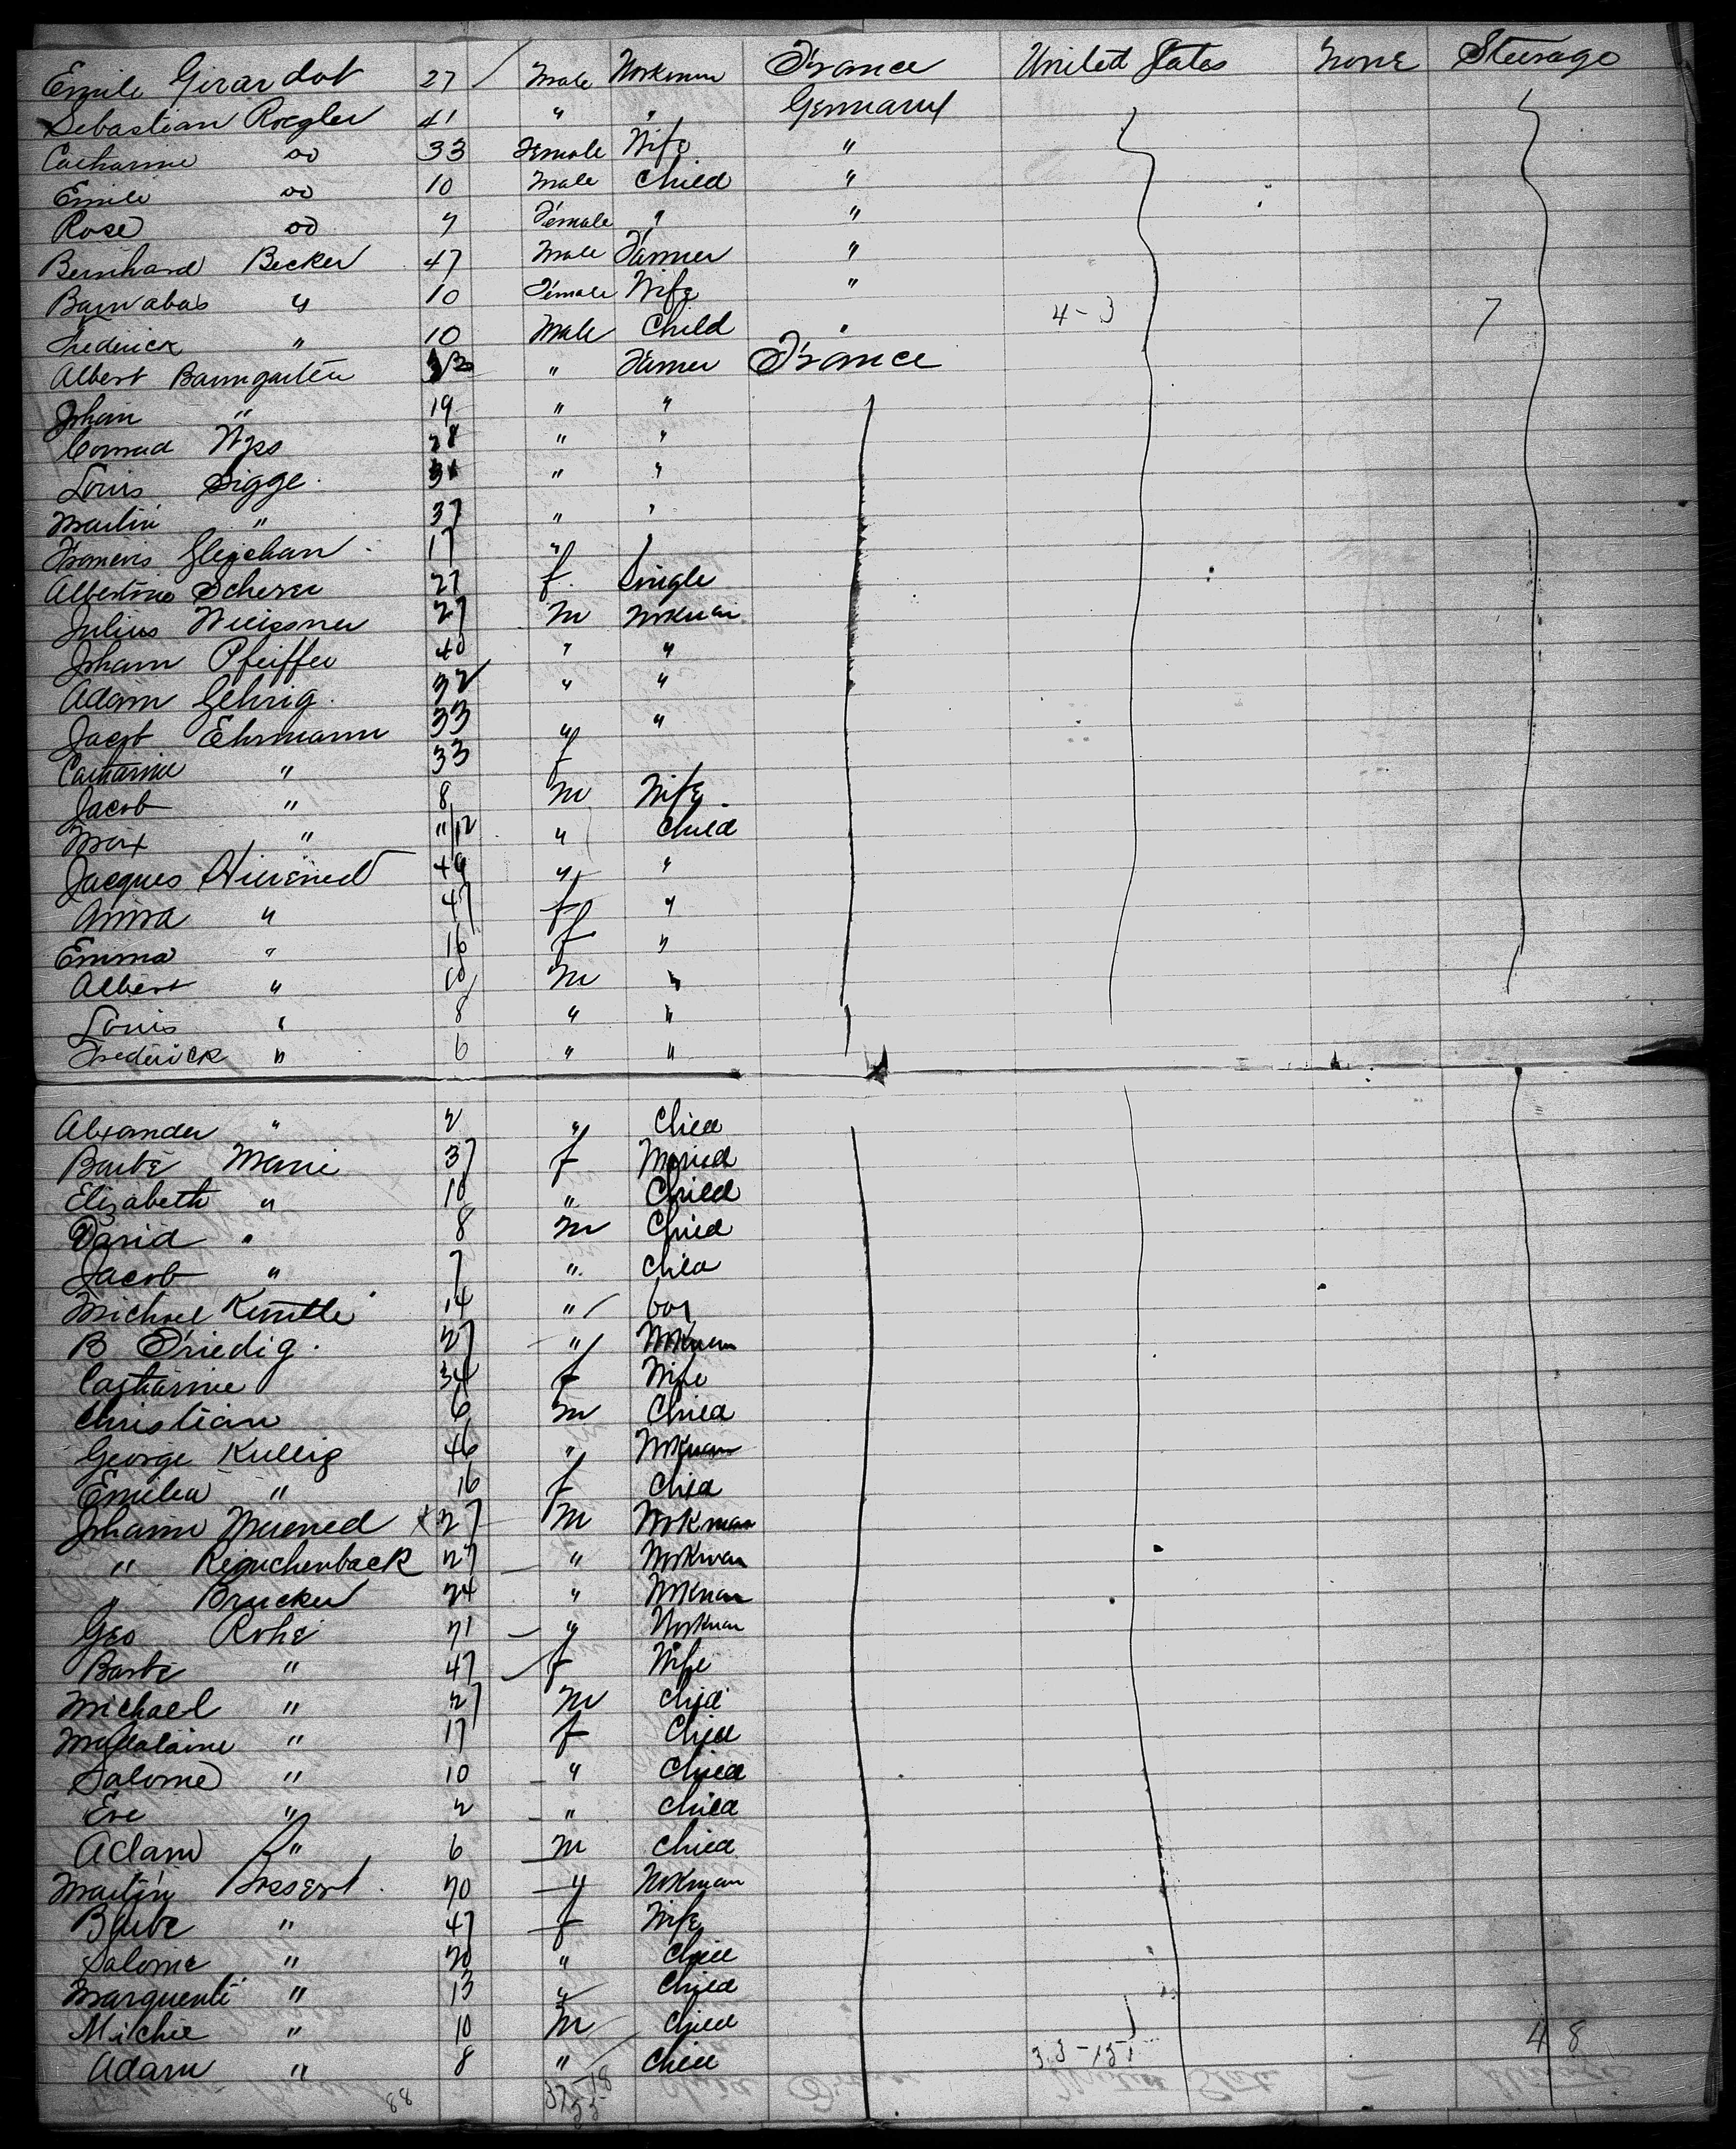 Emile Girardot 27 / Male Workman France United States None Steerage
Sebastian Roegler 41 " " Germany
Catharine do 33 Female Wife "
Emile do 10 Male Child "
Rose do 7 Female " "
Bernhard Becker 47 Male Farmer "
Barnabas " 10 Female Wife " 4-3 7
Frederick " 10 Male Child "
Albert Baumgarten " Farmer France
Johan " 19 " "
Conrad Wyss 28 " "
Louis Sigge 31 " "
Martin " 37 " "
Francois 17 " "
Albertine Scherer 27 f. Single
Julius Weissner 27 m Workman
Johann Pfeiffer 40 " "
Adam Gehrig 32 " "
Jacob Ehrmann 33 " "
Catharine " 33 f
Jacob " 8 m Wife
Max " 11/12 " Child
Jacques 49 " "
Anna " 47 f "
Emma " 16 f "
Albert " 10 m "
Louis " 8 " "
Frederick " 6 " "
Alexander " 2 " Child
Barbe Marie 37 f Maried
Elizabeth " 10 " Child
David " 8 m Child
Jacob " 7 " Child
Michael 14 " boy
B Friedig 27 " Workman
Catharine 34 f Wife
Christian 6 m Child
George Kullig 46 " Workman
Emilia " 16 f Child
Johann x 27 m Workman
" 27 " Workman
" Brucker 24 " Workman
Geo Rohe 71 " Workman
Barbe " 47 f Wife
Michael " 27 m Child
Madalaine " 17 f Child
Salome " 10 " Child
Eve " 2 " Child
Adam " 6 m Child
Martin 70 " Workman
Barbe " 47 f Wife
Salome " 20 " Child
Marguerite " 13 " Child
Michie " 10 m Child
Adam " 8 " Child 33-151 48
88